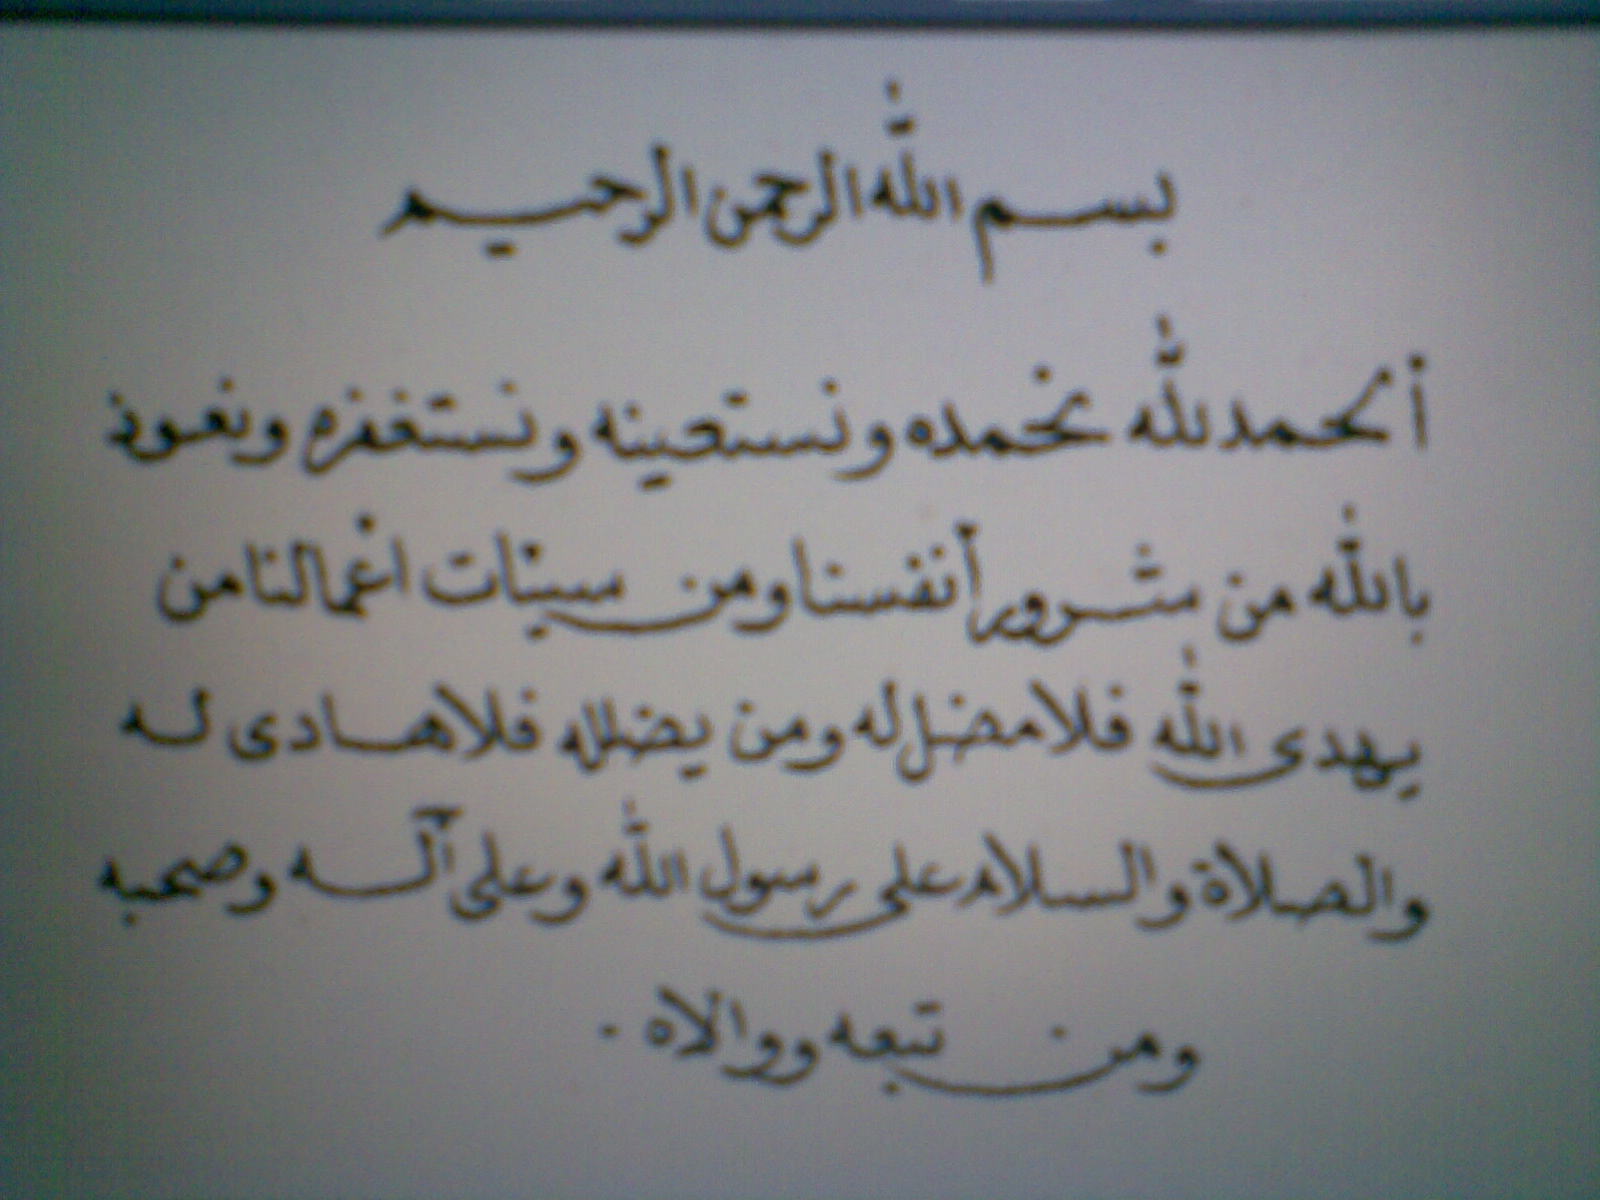 بسم الله الرحمن الرحيم
ألحمد لله نحمده ونستعينه ونستغفره ونعوذ
بالله من شرور أنفسنا ومن سيئات اعمالنا من
يهدى الله فلا مضل له ومن يضلله فلا هادى له
والصلاة والسلام على رسول الله وعلى آله وصحبه
ومن تبعه ووالاه .